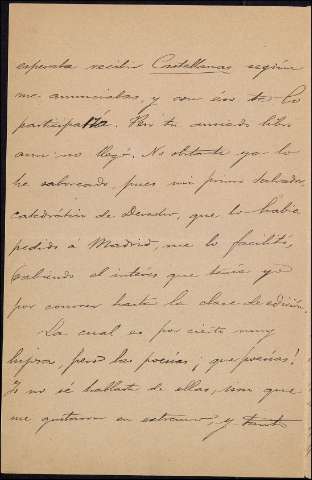 esperaba recibir Castellanas según
me anunciabas, y con eso te lo
participaría. Pero tu ansiado libro
aun no llegó. No obstante ya lo
he saboreado, pues mi primo Salvador,
catedrático de Derecho, que lo había
pedido á Madrid, me lo facilitó,
sabiendo el interés que tenía yo
por conocer hasta la clase de edición.
La cual es por cierto muy
lujosa, pero las poesías ¡que poesías!
Yo no sé hablarte de ellas, sino que
me gustaron en extremo, y tanto